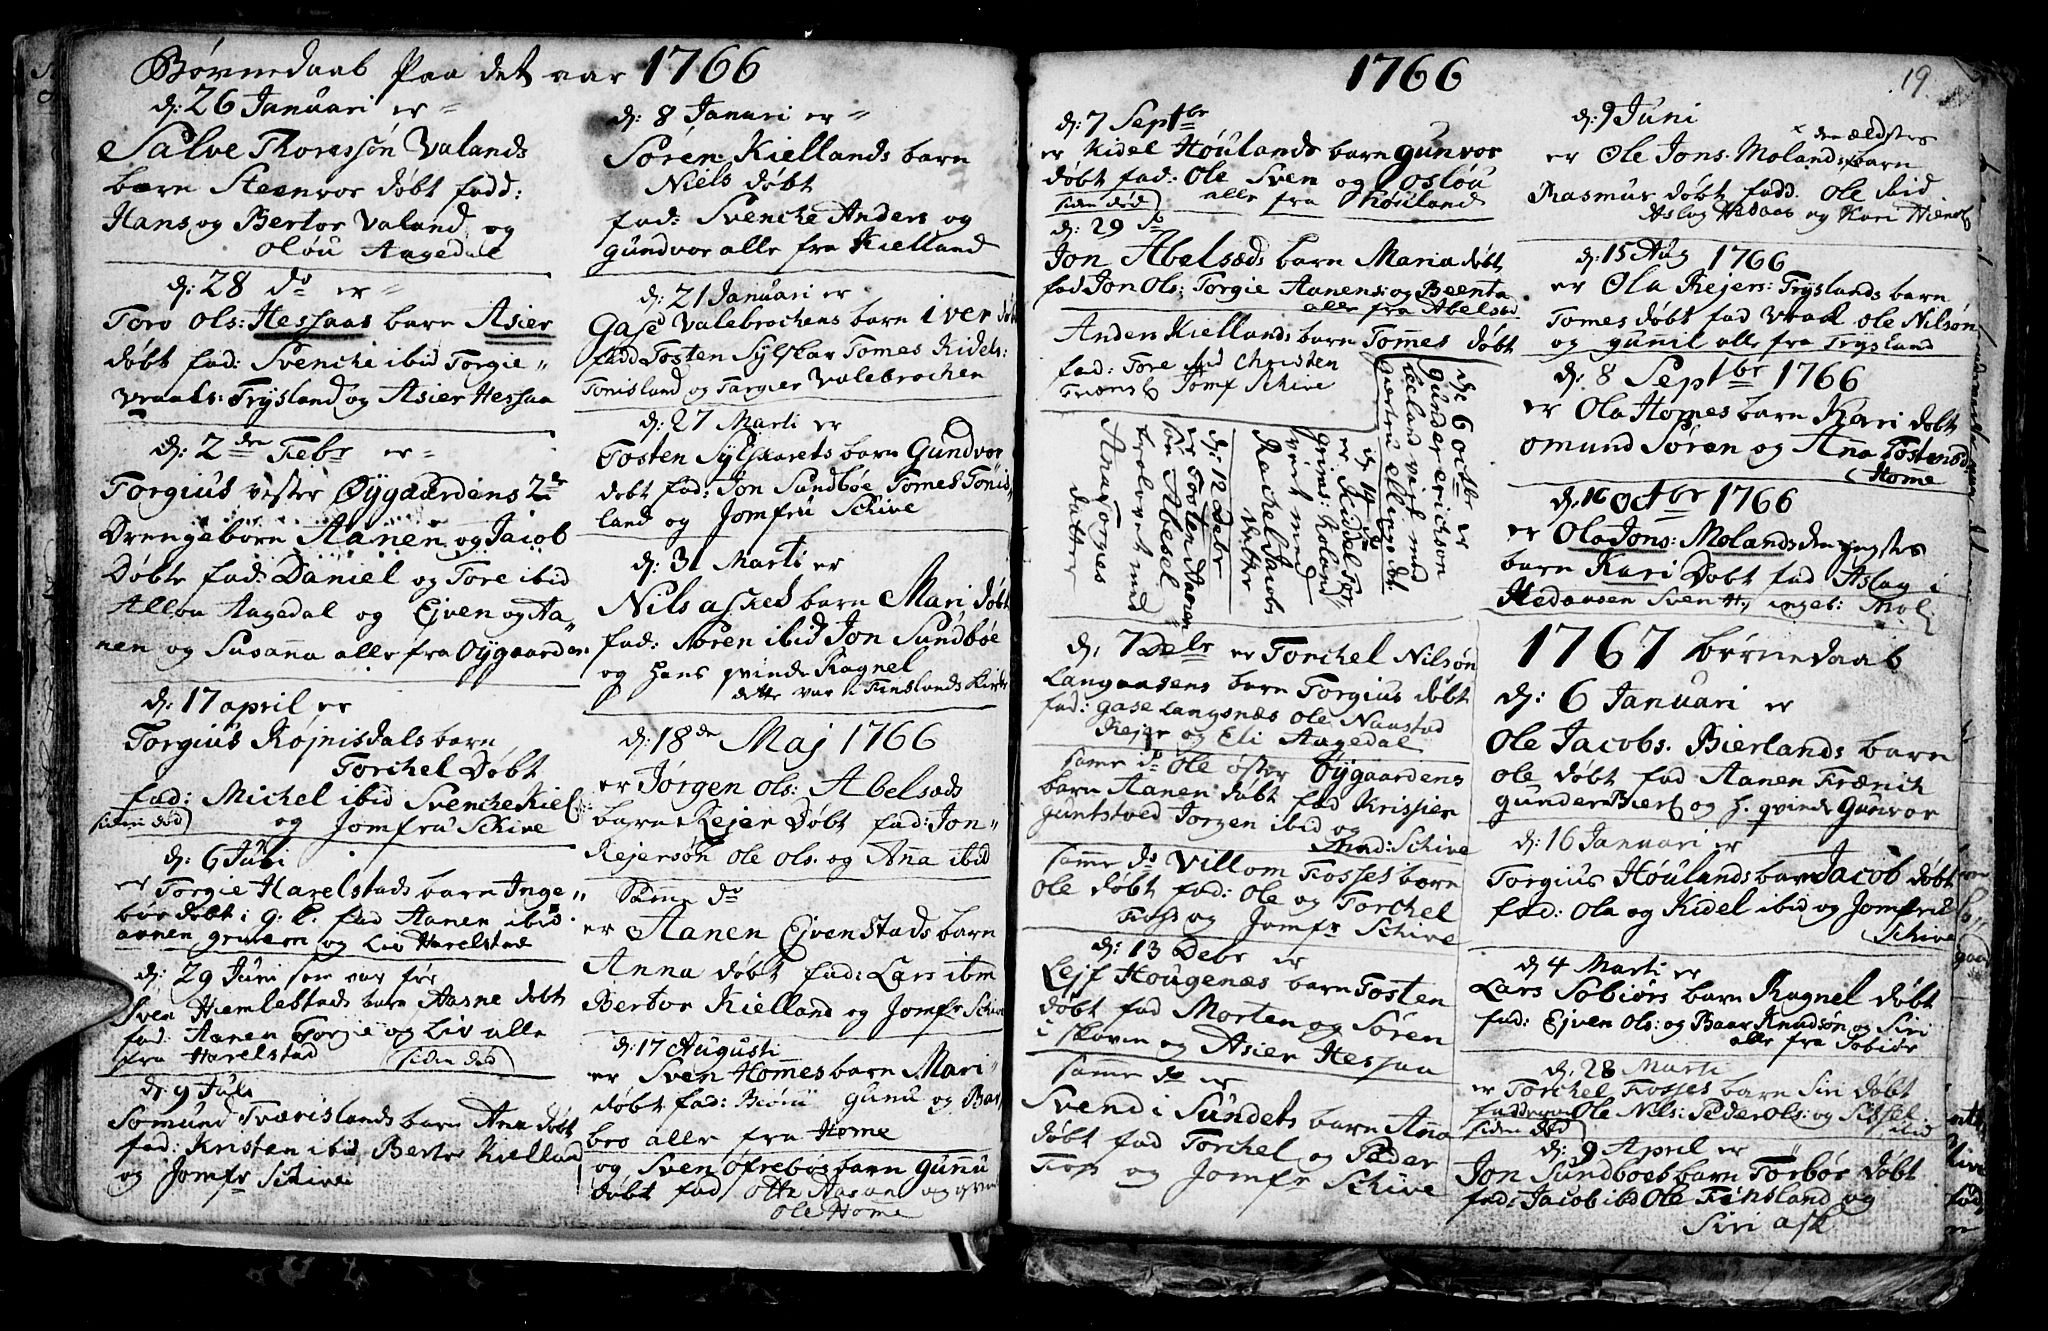 Børnedaab Paa det aar 1766
d: 26 Januari er
Salve Thoressøn Valands
barn Steenvor døbt fadd:
Hans og Bertor Valand og
Oløu Aagedal
d: 28 do er
Toro Ols: Hessaas barn Asier
døbt fad: Svenche ibid Torgie
Vraals: Trysland og Asier Hessaa
d: 2den Febr er
Torgius vester Øygaardens 2de
Drengebørn Aanen og Jacob
Døbte fad: Daniel og Tore ibid
Aagedal og Ejven og Aa
nen og Susanna alle fra Øygaarden
d: 17 april er
Torgius Røjnisdals barn
Torchel Døbt
fad: Michel ibid Svenche Kiel
siden død
og Jomfru Schive
d: 6 Juni
er Torgie Harelstads barn Inge
bør døbt i fad Aanen ibid
og Liv Harelstad
d: 29 Juni som var før
Sven Hiemlestads barn Aasne døbt
fad: Aanen Torgie og Liv alle
fra Harelstad
siden død
d: 9 Juli
Somund Tværislands barn Ana døbt
fad: Kristen ibid Bertor Kielland
og Jomfr Schive
d: 8 Januari er
Søren Kiellands barn
Niels døbt
fad: Svenche Anders og
gundvor alle fra Kielland
d: 21 Januari er
Gase Valebrochens barn iver døbt
fadd Tosten Sylskar Tomes Kidels:
Tonisland og Targier Valebrochen
d: 27 Marti er
Tosten Sylskarets barn Gundvor
døbt fad: Jon Sundbøe Tomes Tonis
land og Jomfru Schive
d: 31 Marti er
Nils asked barn Mari døbt
fad: Søren ibid Jon Sundbøe
og hans qvinde Ragnel
dette var i Finslands kirke
d: 18de Maj 1766
er Jørgen Ols: Abelsæds
barn Rejer Døbt fad: Jon
Rejersøn Ole Ols. og Anna ibid
Samme do
er Aanen Ejvenstads barn
Anna døbt fad: Lars ibm
Bertor Kielland og Jomfr Schive
d: 17 Augusti
er Sven Homes barn Mari
døbt fad: Biørn Gunu og Bar
bro alle fra Home
og Sven Øfrebøs barn Gunnu
døbt fad Otte Aasan og qvin
Ole Home
1766
d: 7 Septbr
er Kidel Høulands barn gunvor
døbt fad: Ole Sven og Osløu
siden død
alle fra Høuland
d: 29 do
Jon Abelsæds barn Maria døbt
fad Jon Ols: Torgie Aanens: og Beenta
alle fra Abelsæd
Anders Kiellands barn Tomes døbt
fad: Tore ibid Christen
Jomf Schive
d: 6 octbr er
gunder erichsøn
viet med
giertru
d: 14 do
er Kidel Tor
grims: Roland
viet med
Rachel Jacobs
datter
d: 12 Debr
er Tosten Aanen
søn Abesel
trolovet med
Ana Torges
datter
d: 7 Debr er Torchel Nilsøn
Langaasens barn Torgius døbt
fad: Gase Langsnæs Ole Naastad
Rejer og Eli Aagedal
samme do Ole øster Øygaardens
barn Aanen døbt fad Kristien
guntstved Jorgen ibid og
Mad: Schive
samme do Villom Fosses barn
Ole døbt fad: Ole og Torchel
Foss og Jomfr Schive
d: 13 Debr er
Lejf Hougenæs barn Tosten
døbt fad Morten og Søren
i skoven og Asier Hessaa
samme do er
Svend i Sundets barn Anna
døbt fad Torchel og Peder
Foss og Jomfr Schive
19
d: 9 Juni
er Ole Jons. Molands barn
x den ældstes
Rasmus døbt fadd. Ole ibid
Aslag Hedaas og Kari
d: 15 Aug 1766
er Ola Rejers: Tryslands barn
Tomes døbt fad Vraal Ole Nilsøn
og gunil alle fra Trysland
d: 8 Septbr 1766
er Ola Homes barn Kari døbt
omund Søren og Anna Tostensd
Home
d: 16 Octbr 1766
er Ola Jons: Molands den yngstes
barn Kari Døbt fad Aslag i
Hedaasen Sven ingeb: Mol
1767 børnedaab
d: 6 Januari er
Ole Jacobs. Bierlands barn
Ole døbt fad Aanen Frænich
gunder Bierl og h. qvinde Gunvor
d: 16 Januari er
Torgius Høulands barn Jacob døbt
fad: Ola og Kidel ibid og Jomfru
Schive
d 4 Marti er
Lars Sobiørs barn Ragnel døbt
fad: Ejven Ols: og Baar Knudsøn og Siri
alle fra Sobiør
d: 28 Marti
er Torchel Fosses barn Siri døbt
fadderne Ole Nils: Peder Ols: og Sissel
siden død
ibid
d: 9 April er
Jon Sundboes barn Torbør døbt
fad: Jacob ibid Ole Finsland og
Siri ask